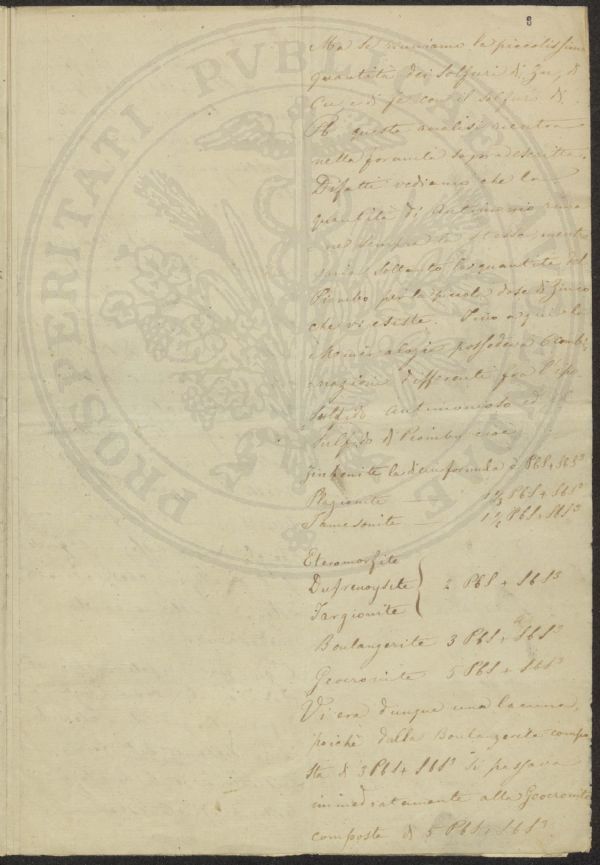 8
Ma se riuniamo la piccolissima
quantità dei solfuri di Zn, di
Cu e di fe con il solfuro di
Pb questa analisi rientra
nella formula sopradescritta.
Difatti vediamo che la
quantità di Antimonio
sempre la stessa mente
soltanto la quantità del
Piombo per la piccola dose di Zinco
che vi esiste. Fino a qui
i Mineralogi possedeva 6 combi
nazioni differenti fra l'ipo
solfido Antimonioso ed il
Sulfido di Piombo cioè
Zinkenite la di cui formula è PbS + SbS3
Plagionite 1 1/3 PbS + SbS3
Jamesonite 1 1/2 PbS + SbS3
Eteromorfite
Dufrenoysite } 2 PbS + SbS3
Targionite
Boulangerite 3 PbS + SbS3
Geocronite 5 PbS + SbS3
Vi era dunque una lacuna,
poichè dalla Boulangerite compo
sta di 3 PbS + SbS3 si passava
immediatamente alla Geocronite
composta di 5 PbS + SbS3.
PROSPERITATI PVBLICAE